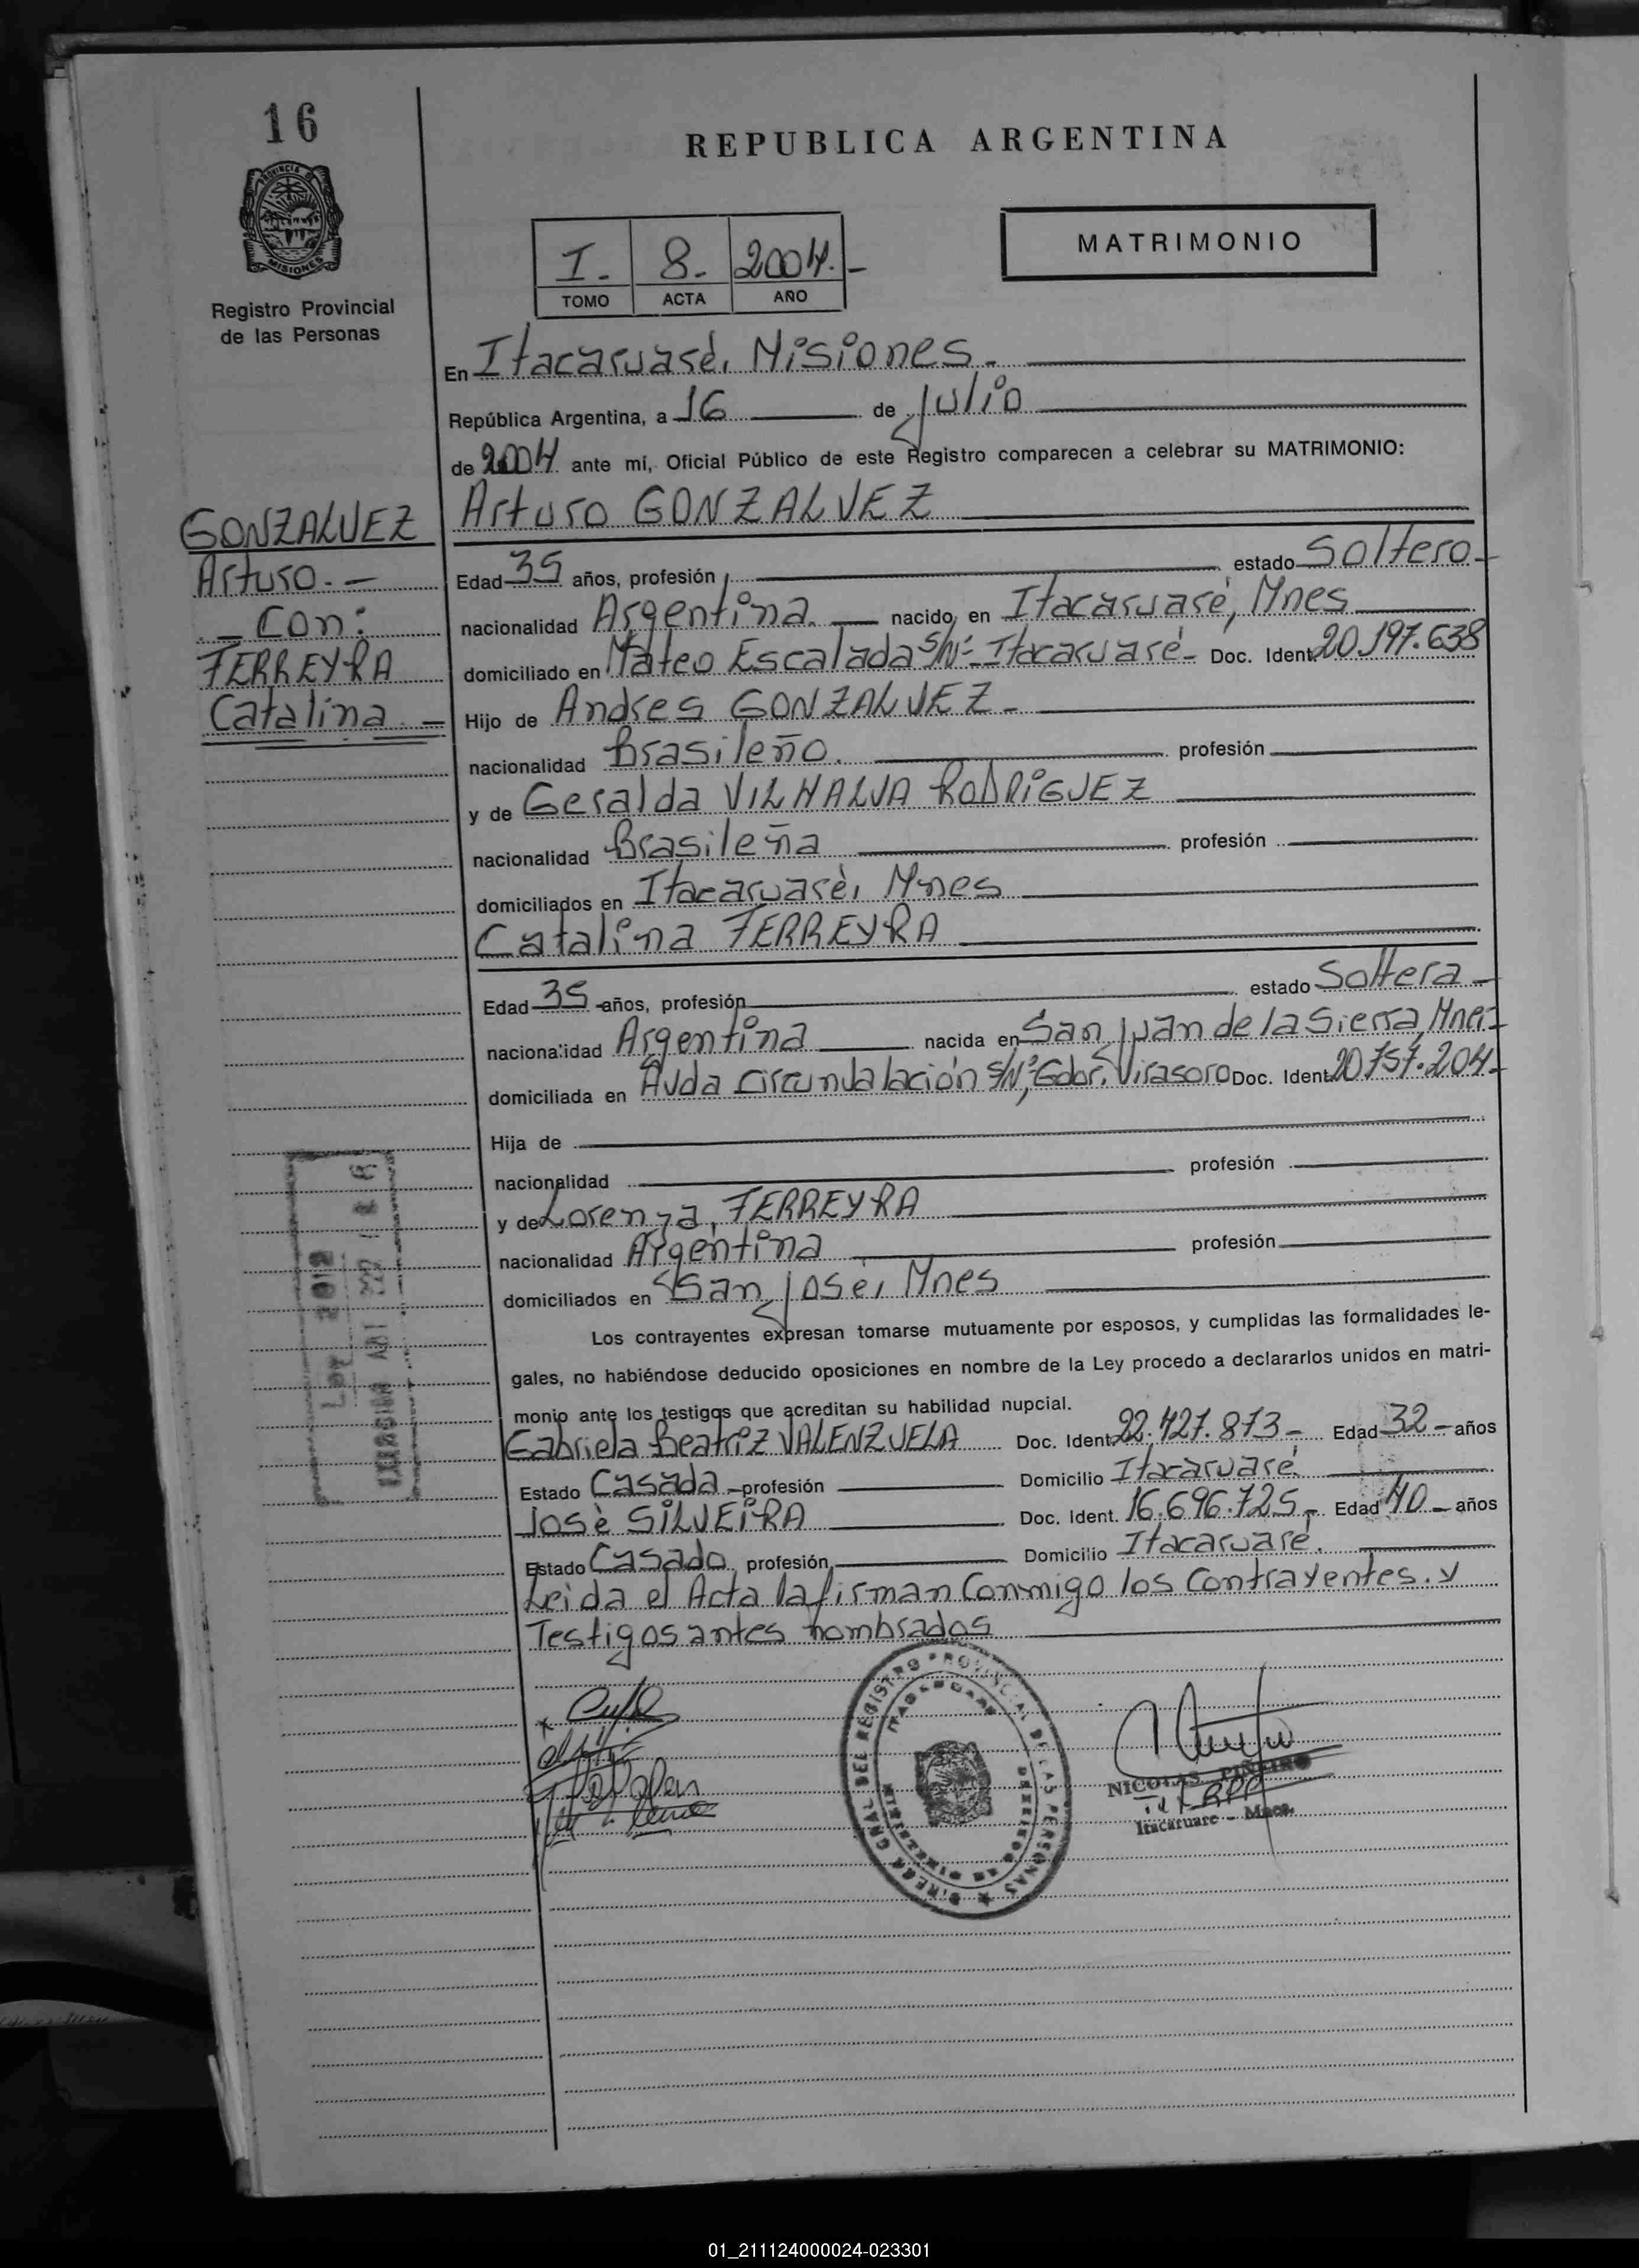 16
REPUBLICA ARGENTINA
PROVINCIA DE
MISIONES
Registro Provincial
de las Personas
I. 8. 2004.-
TOMO ACTA AÑO
MATRIMONIO
En Itacaruaré, Misiones.-
República Argentina, a 16 de Julio
de 2004 ante mí, Oficial Público de este Registro comparecen a celebrar su MATRIMONIO:
GONZALVEZ
Arturo.-
- Con:
FERREYRA
Catalina.-
Arturo GONZALVEZ
Edad 35 años, profesión estado Soltero-
nacionalidad Argentina. nacido en Itacaruaré, Mnes
domiciliado en Mateo Escalada S/Nº- Itacaruaré- Doc. Ident. 20.197.638
Hijo de Andres GONZALVEZ-
nacionalidad Brasileño. profesión
y de Geralda VILHALVA RODRIGUEZ
nacionalidad Brasileña profesión
domiciliados en Itacaruarè, Mnes
Catalina FERREYRA
Edad 35 años, profesión estado Soltera-
nacionalidad Argentina nacida en San Juan de la Sierra, Mnes-
domiciliada en Avda Circunvalación S/Nº, Gdor. Virasoro Doc. Ident. 20.757.204-
Hija de
nacionalidad profesión
y de Lorenza, FERREYRA
nacionalidad Argentina profesión
domiciliados en San José, Mnes
Los contrayentes expresan tomarse mutuamente por esposos, y cumplidas las formalidades le-
gales, no habiéndose deducido oposiciones en nombre de la Ley procedo a declararlos unidos en matri-
monio ante los testigos que acreditan su habilidad nupcial.
Gabriela Beatriz VALENZUELA Doc. Ident. 22.427.873- Edad 32- años
Estado Casada- profesión Domicilio Itacaruaré
Josè SILVEIRA Doc. Ident. 16.696.725- Edad 40- años
Estado Casado profesión Domicilio Itacaruaré.
Leida el Acta la firman Conmigo los Contrayentes. y
Testigos antes nombrados
DIREC. GRAL DEL REGISTRO PROVINCIAL DE LAS PERSONAS
NICOLAS PIÑEIRO
Itacaruare - Mnes.
01_211124000024-023301